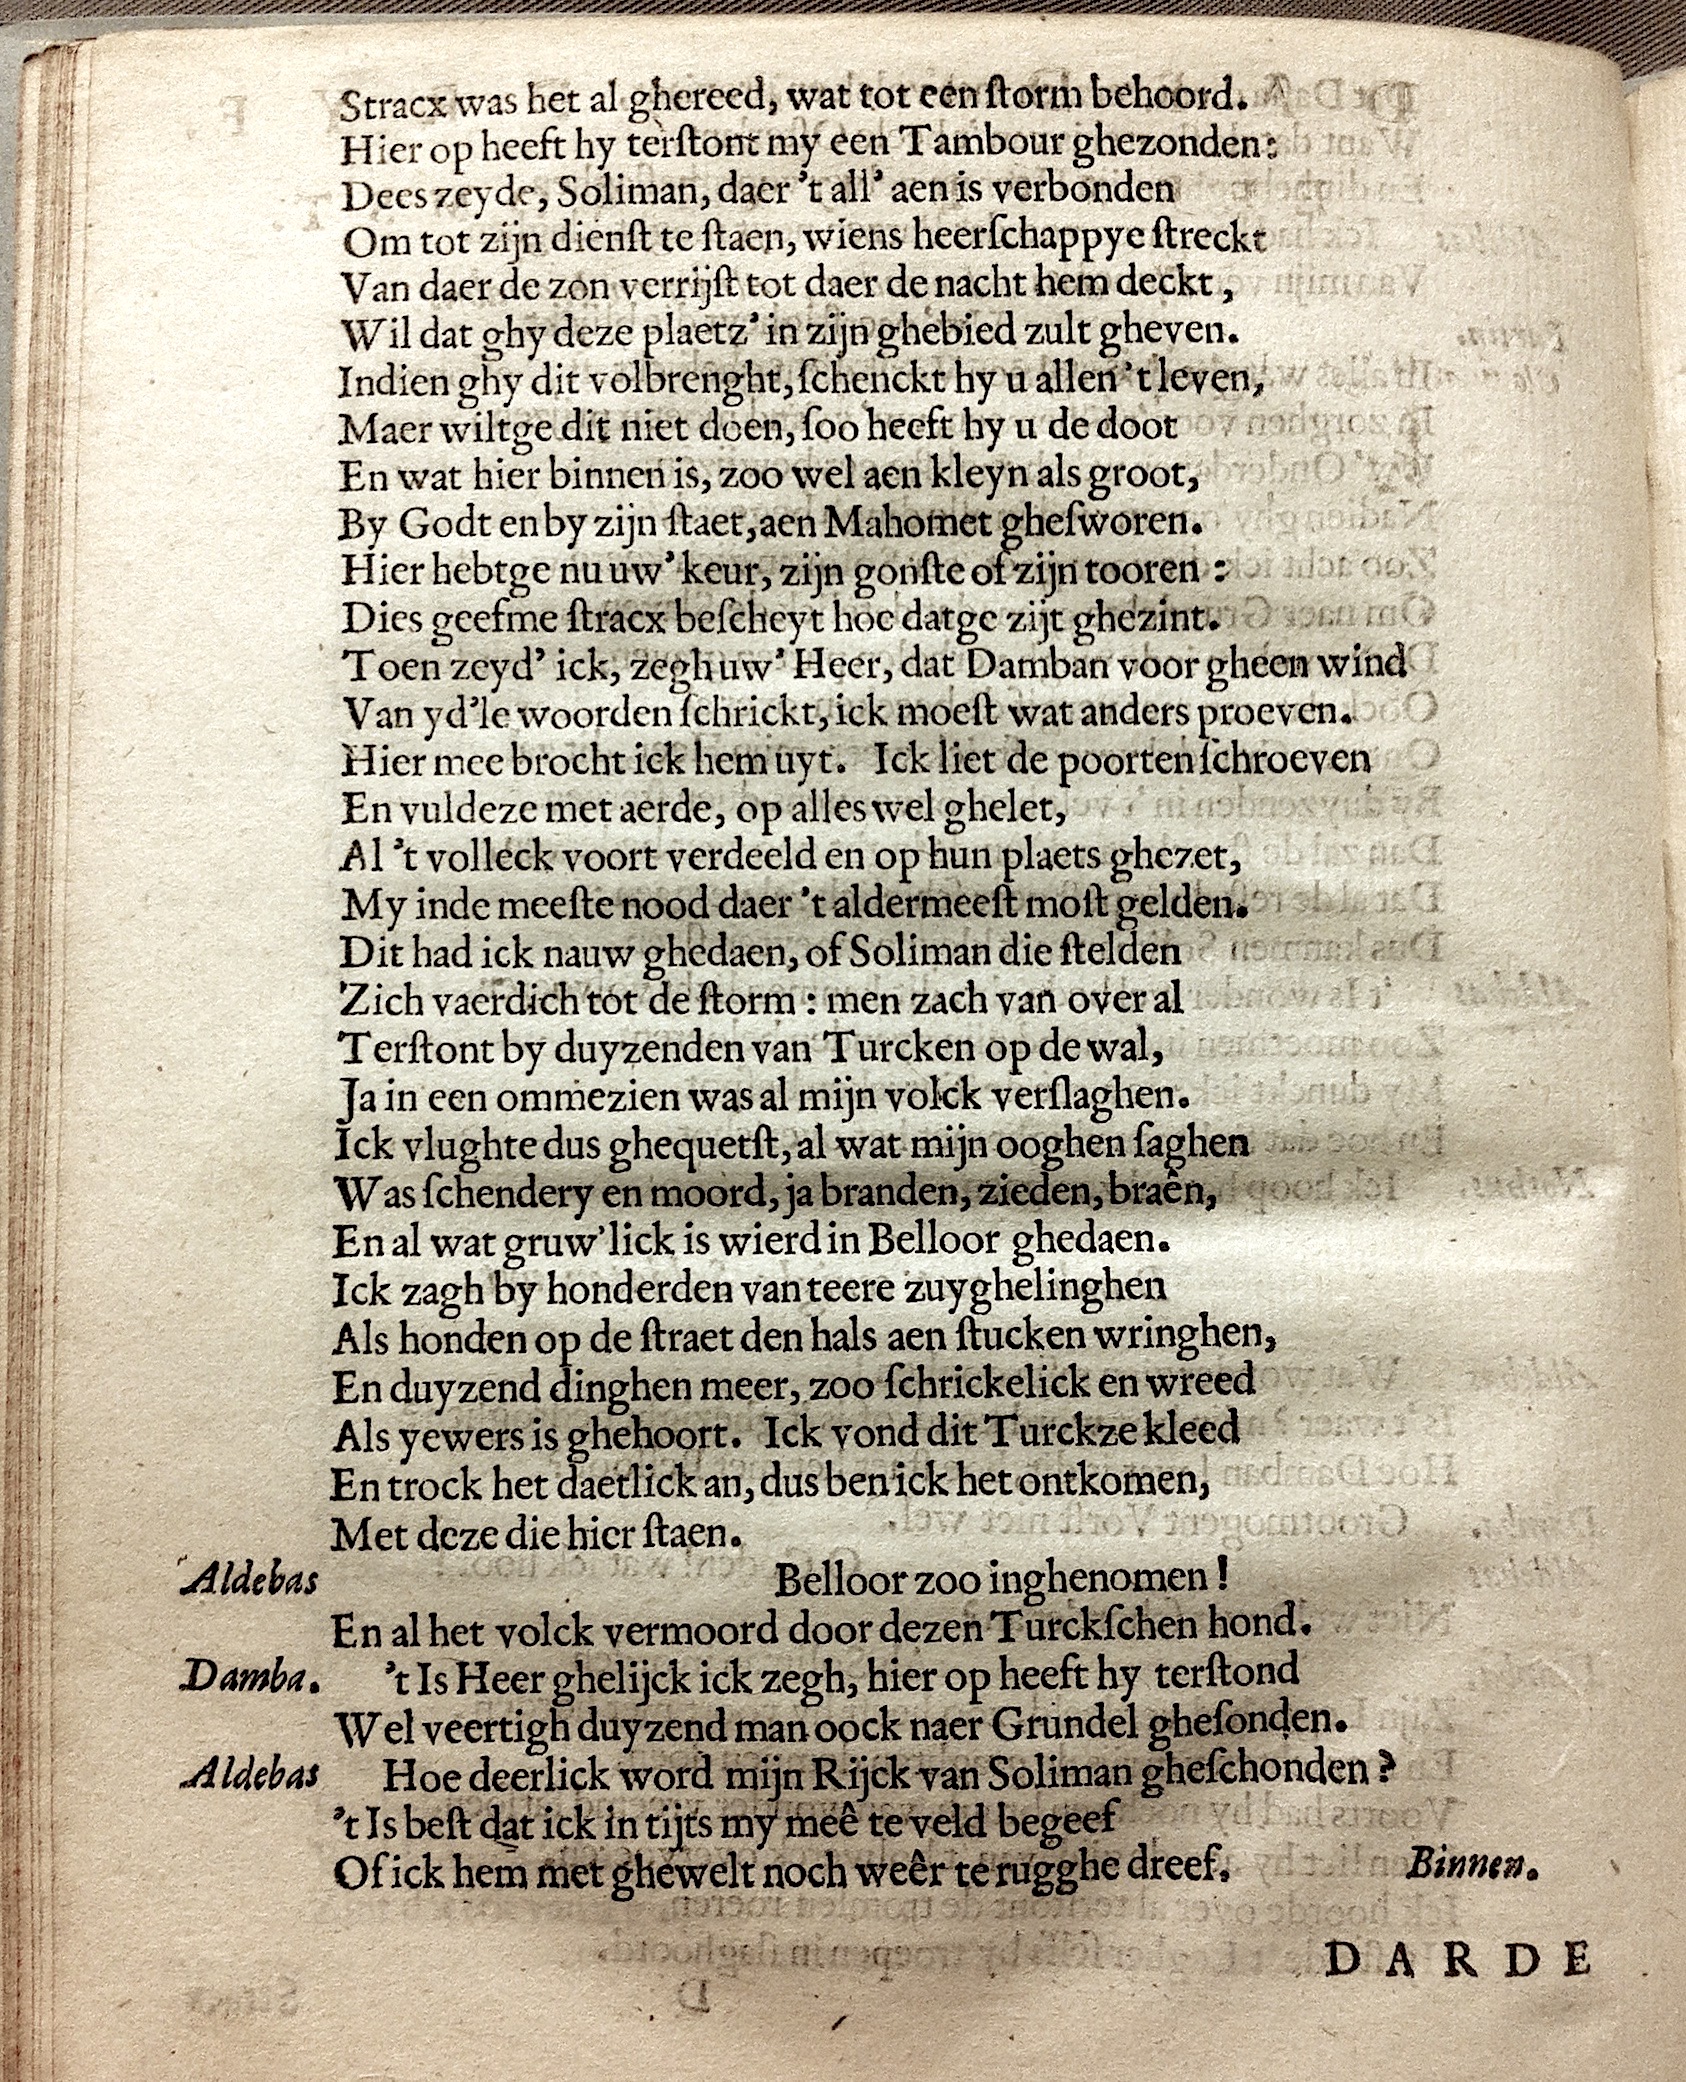 Stracx was het al ghereed, wat tot een ſtorm behoord.
Hier op heeft hy terſtont my een Tambour ghezonden:
Dees zeyde, Soliman, daer ’t all’ aen is verbonden
Om tot zijn dienſt te ſtaen, wiens heerſchappye ſtreckt
Van daer de zon verrijſt tot daer de nacht hem deckt,
Wil dat ghy deze plaetz’ in zijn ghebied zult gheven.
Indien ghy dit volbrenght, ſchenckt hy u allen ’t leven,
Maer wiltge dit niet doen, ſoo heeft hy u de doot
En wat hier binnen is, zoo wel aen kleyn als groot,
By Godt en by zijn ſtaet, aen Mahomet gheſworen.
Hier hebtge nu uw’ keur, zijn gonſte of zijn tooren:
Dies geefme ſtracx beſcheyt hoe datge zijt ghezint.
Toen zeyd’ ick, zegh uw’ Heer, dat Damban voor gheen wind
Van yd’le woorden ſchrickt, ick moeſt wat anders proeven.
Hier mee brocht ick hem uyt. Ick liet de poorten ſchroeven
En vuldeze met aerde, op alles wel ghelet,
Al ’t volleck voort verdeeld en op hun plaets ghezet,
My inde meeſte nood daer ’t aldermeeſt moſt gelden.
Dit had ick nauw ghedaen, of Soliman die ſtelden
Zich vaerdich tot de ſtorm: men zach van over al
Terſtont by duyzenden van Turcken op de wal,
Ja in een ommezien was al mijn volck verſlaghen.
Ick vlughte dus ghequetſt, al wat mijn ooghen ſaghen
Was ſchendery en moord, ja branden, zieden, braên,
En al wat gruw’lick is wierd in Belloor ghedaen.
Ick zagh by honderden van teere zuyghelinghen
Als honden op de ſtraet den hals aen ſtucken wringhen,
En duyzend dinghen meer, zoo ſchrickelick en wreed
Als yewers is ghehoort. Ick vond dit Turckze kleed
En trock het daetlick an, dus ben ick het ontkomen,
Met deze die hier ſtaen.
Aldebas Belloor zoo inghenomen!
En al het volck vermoord door dezen Turckſchen hond.
Damba. ’t Is Heer ghelijck ick zegh, hier op heeft hy terſtond
Wel veertigh duyzend man oock naer Grundel gheſonden.
Aldebas Hoe deerlick word mijn Rijck van Soliman gheſchonden?
’t Is beſt dat ick in tijts my meê te veld begeef
Of ick hem met ghewelt noch weêr te rugghe dreef. Binnen.
DARDE